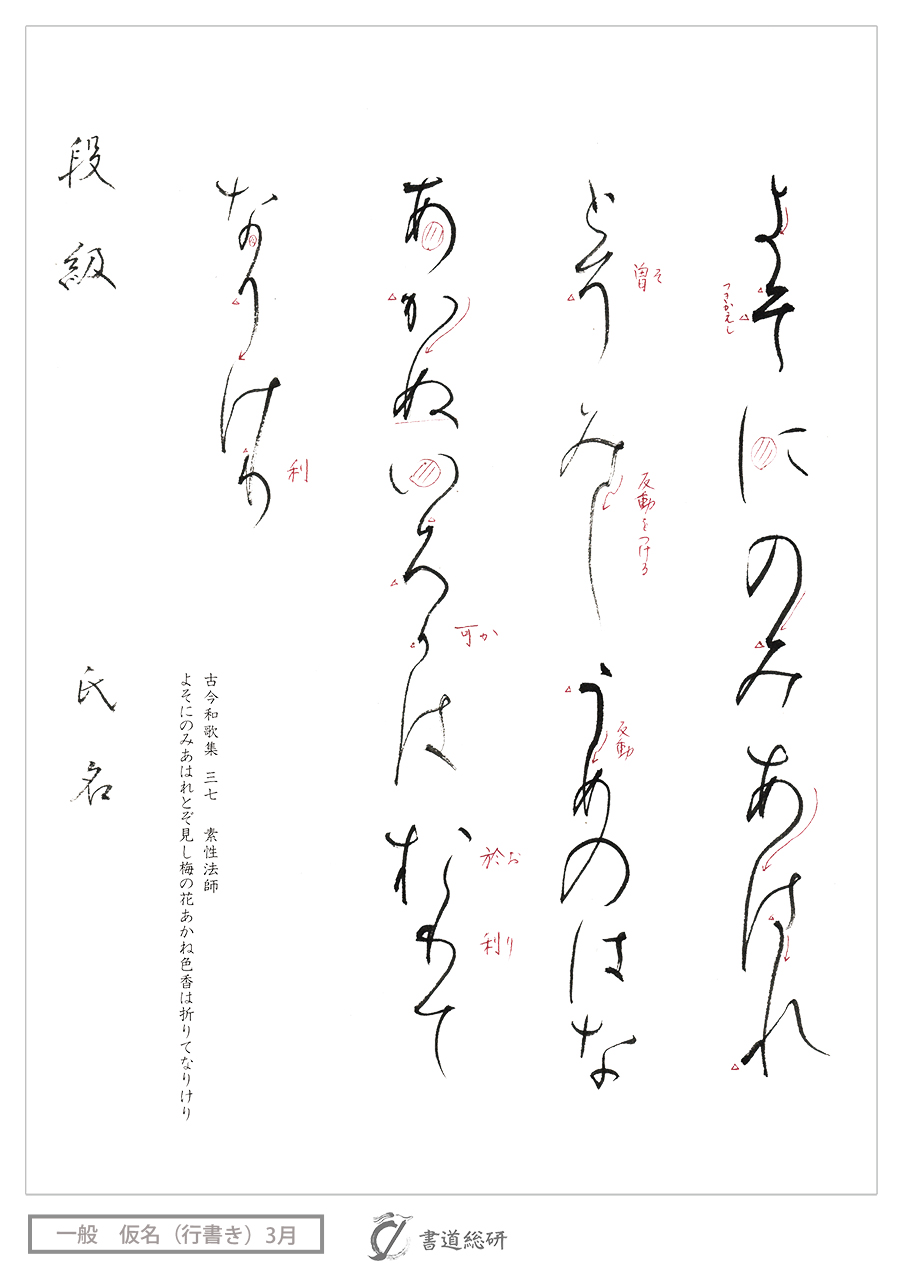 よそにのみあはれ
とそ
曽そ
つきかえし
みし
反動をつける
うめのはな
反動
あかぬいろかは
可か
おりて
於お
利り
なりけり
利
古今和歌集 三七 素性法師
よそにのみあはれとぞ見し梅の花あかね色香は折りてなりけり
段級
氏名
一般 仮名（行書き）3月
書道総研